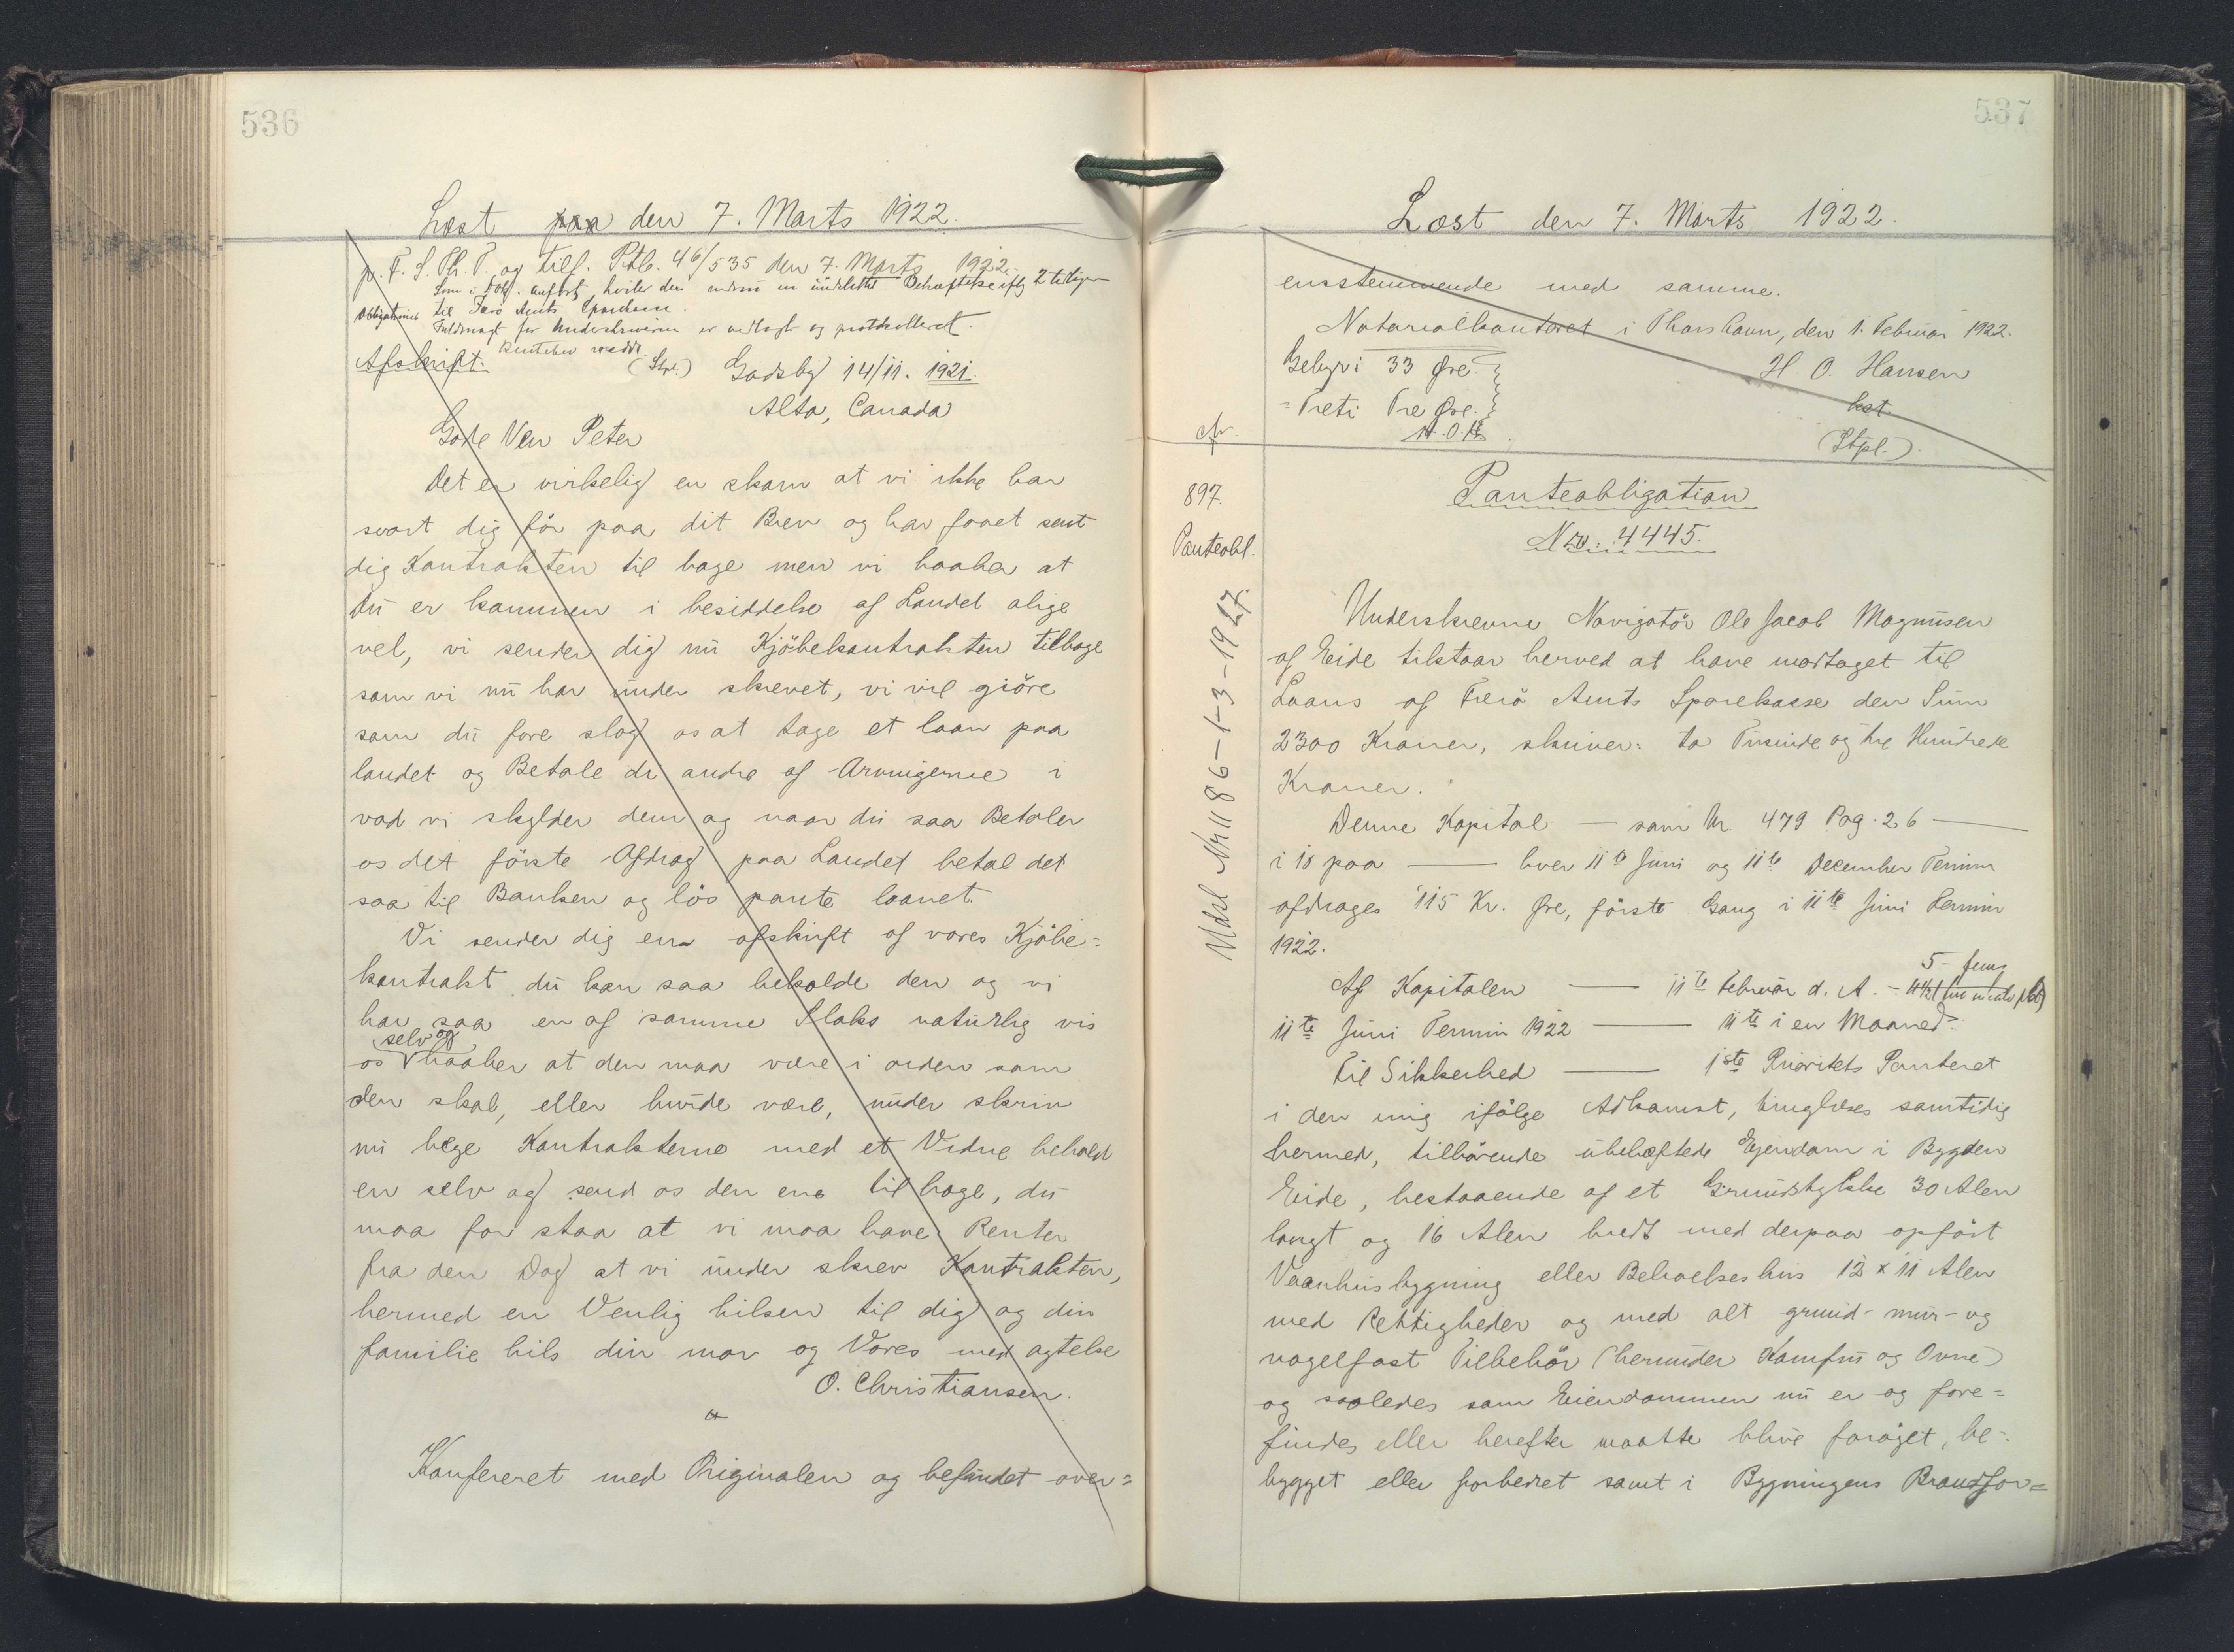 536
Læst paa den 7. Marts 1922.
p. F. S. Th. T. og tilf. Ptb. 46/535 den 7. Marts 1922.
Som i Folg. anført, hviler den endnu en uudslettet Behæftelse iflg 2 tidligere
Obligationer til Færø Amts Sparekasse.
Fuldmagt for Underskriveren er vedlagt og protokolleret.
Afskrift.
(Stpl.) Gadsby 14/11. 1921.
Alta, Canada
Gode Ven Peter
Det er virkelig en skam at vi ikke har
svart dig för paa dit Brev og har faaet sent
dig Kontrakten til bage men vi haaber at
Du er kommen i besiddelse af Landet alige
vel, vi sender dig nu Kjöbekontrakten tilbage
som vi nu har under skrevet, vi vil giöre
som du fore slog os at tage et laan paa
landet og Betale di andre af Arvingerne i
vad vi skylder dem og naar du saa Betaler
os det förste Afdrag paa Landet betal det
saa til Banken og lös pante laanet.
Vi sender dig en afskrift af vores Kjöbe=
kontrakt du kan saa beholde den og vi
har saa en af samme Slaks naturlig vis
selv og
os haaber at den maa være i orden som
den skal, eller burde være, under skriv
nu bege Kontrakterne med et Vidne behold
en selv og send os den ene til bage, du
maa for staa at vi maa have Renter
fra den Dag at vi under skrev Kontrakten,
hermed en Venlig hilsen til dig og din
familie hils din mor og Vores med agtelse
O. Christiansen.
Konfereret med Originalen og befundet over=
537
Læst den 7. Marts 1922.
ensstemmende med samme.
Notarialkontoret i Thorshavn, den 1. Februar 1922.
Gebyr: 33 Øre.
H. O. Hansen
= Treti Tre Øre.
kst.
H.O.H.
(Stpl.)
897.
Panteobl.
Mdsl Nr 1186-1-3-1927.
Panteobligation
Nro: 4445.
Underskrevne Navigatör Ole Jacob Magnusen
af Eide tilstaar herved at have modtaget til
Laans af Færö Amts Sparekasse den Sum
2300 Kroner, skriver: to Tusinde og tre Hundrede
Kroner.
Denne Kapital — som Nr. 479 Pag. 26 —
i 10 paa — hver 11te Juni og 11te December Termin
afdrages 115 Kr. Øre, förste Gang i 11te Juni Termin
1922.
5 - fem
Af Kapitalen — 11te Februar d. A. -
11te Juni Termin 1922 — 11te i en Maaned.
Til Sikkerhed — 1ste Prioritets Panteret
i den mig ifölge Adkomst, tinglæses samtidig
hermed, tilhörende ubehæftede Ejendom i Bygden
Eide, bestaaende af et Grundstykke 30 Alen
langt og 16 Alen bredt med derpaa opfört
Vaanhusbygning eller Beboelseshus 12 x 11 Alen
med Rettigheder og med alt grund- mur- og
nagelfast Tilbehör (herunder Komfur og Ovne)
og saaledes som Eiendommen nu er og fore=
findes eller herefter maatte blive foröget, be-
bygget eller forbedret samt i Bygningens Brandfor=